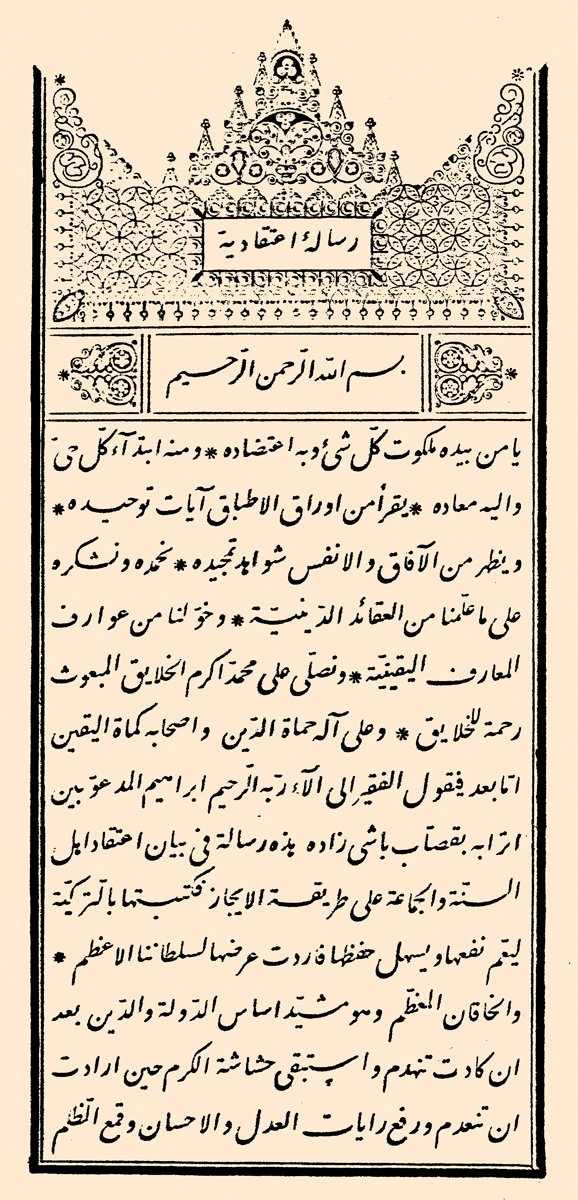 رسالهٔ اعتقادية
بسم الله الرّحمن الرّحيم
يا من بيده ملكوت كلّ شئ وبه اعتضاده * ومنه ابتدآء كلّ حىّ
واليه معاده * يقرأ من اوراق الاطباق آيات توحيده *
وينظر من الآفاق والانفس شواهد تمجيده * نحمده ونشكره
على ما علّمنا من العقائد الدّينيّة * وخوّلنا من عوارف
المعارف اليقينيّة * ونصلّى على محمّد اكرم الخلايق المبعوث
رحمة للخلايق * وعلى آله حماة الدّين واصحابه كماة اليقين
امّا بعد فيقول الفقير الى آلآء ربّه الرّحيم ابراهيم المدعوّ بين
اترابه بقصّاب باشى زاده هذه رسالة فى بيان اعتقاد اهل
السنّة والجماعة على طريقة الايجاز فكتبتها بالتّركيّة
ليتمّ نفعها ويسهل حفظها فاردت عرضها لسلطاننا الاعظم *
والخاقان المعظّم وهو مشيّد اساس الدّولة والدّين بعد
ان كادت تنهدم واستبقى حشاشة الكرم حين ارادت
ان تنعدم ورفع رايات العدل والاحسان وقمع الظّلم